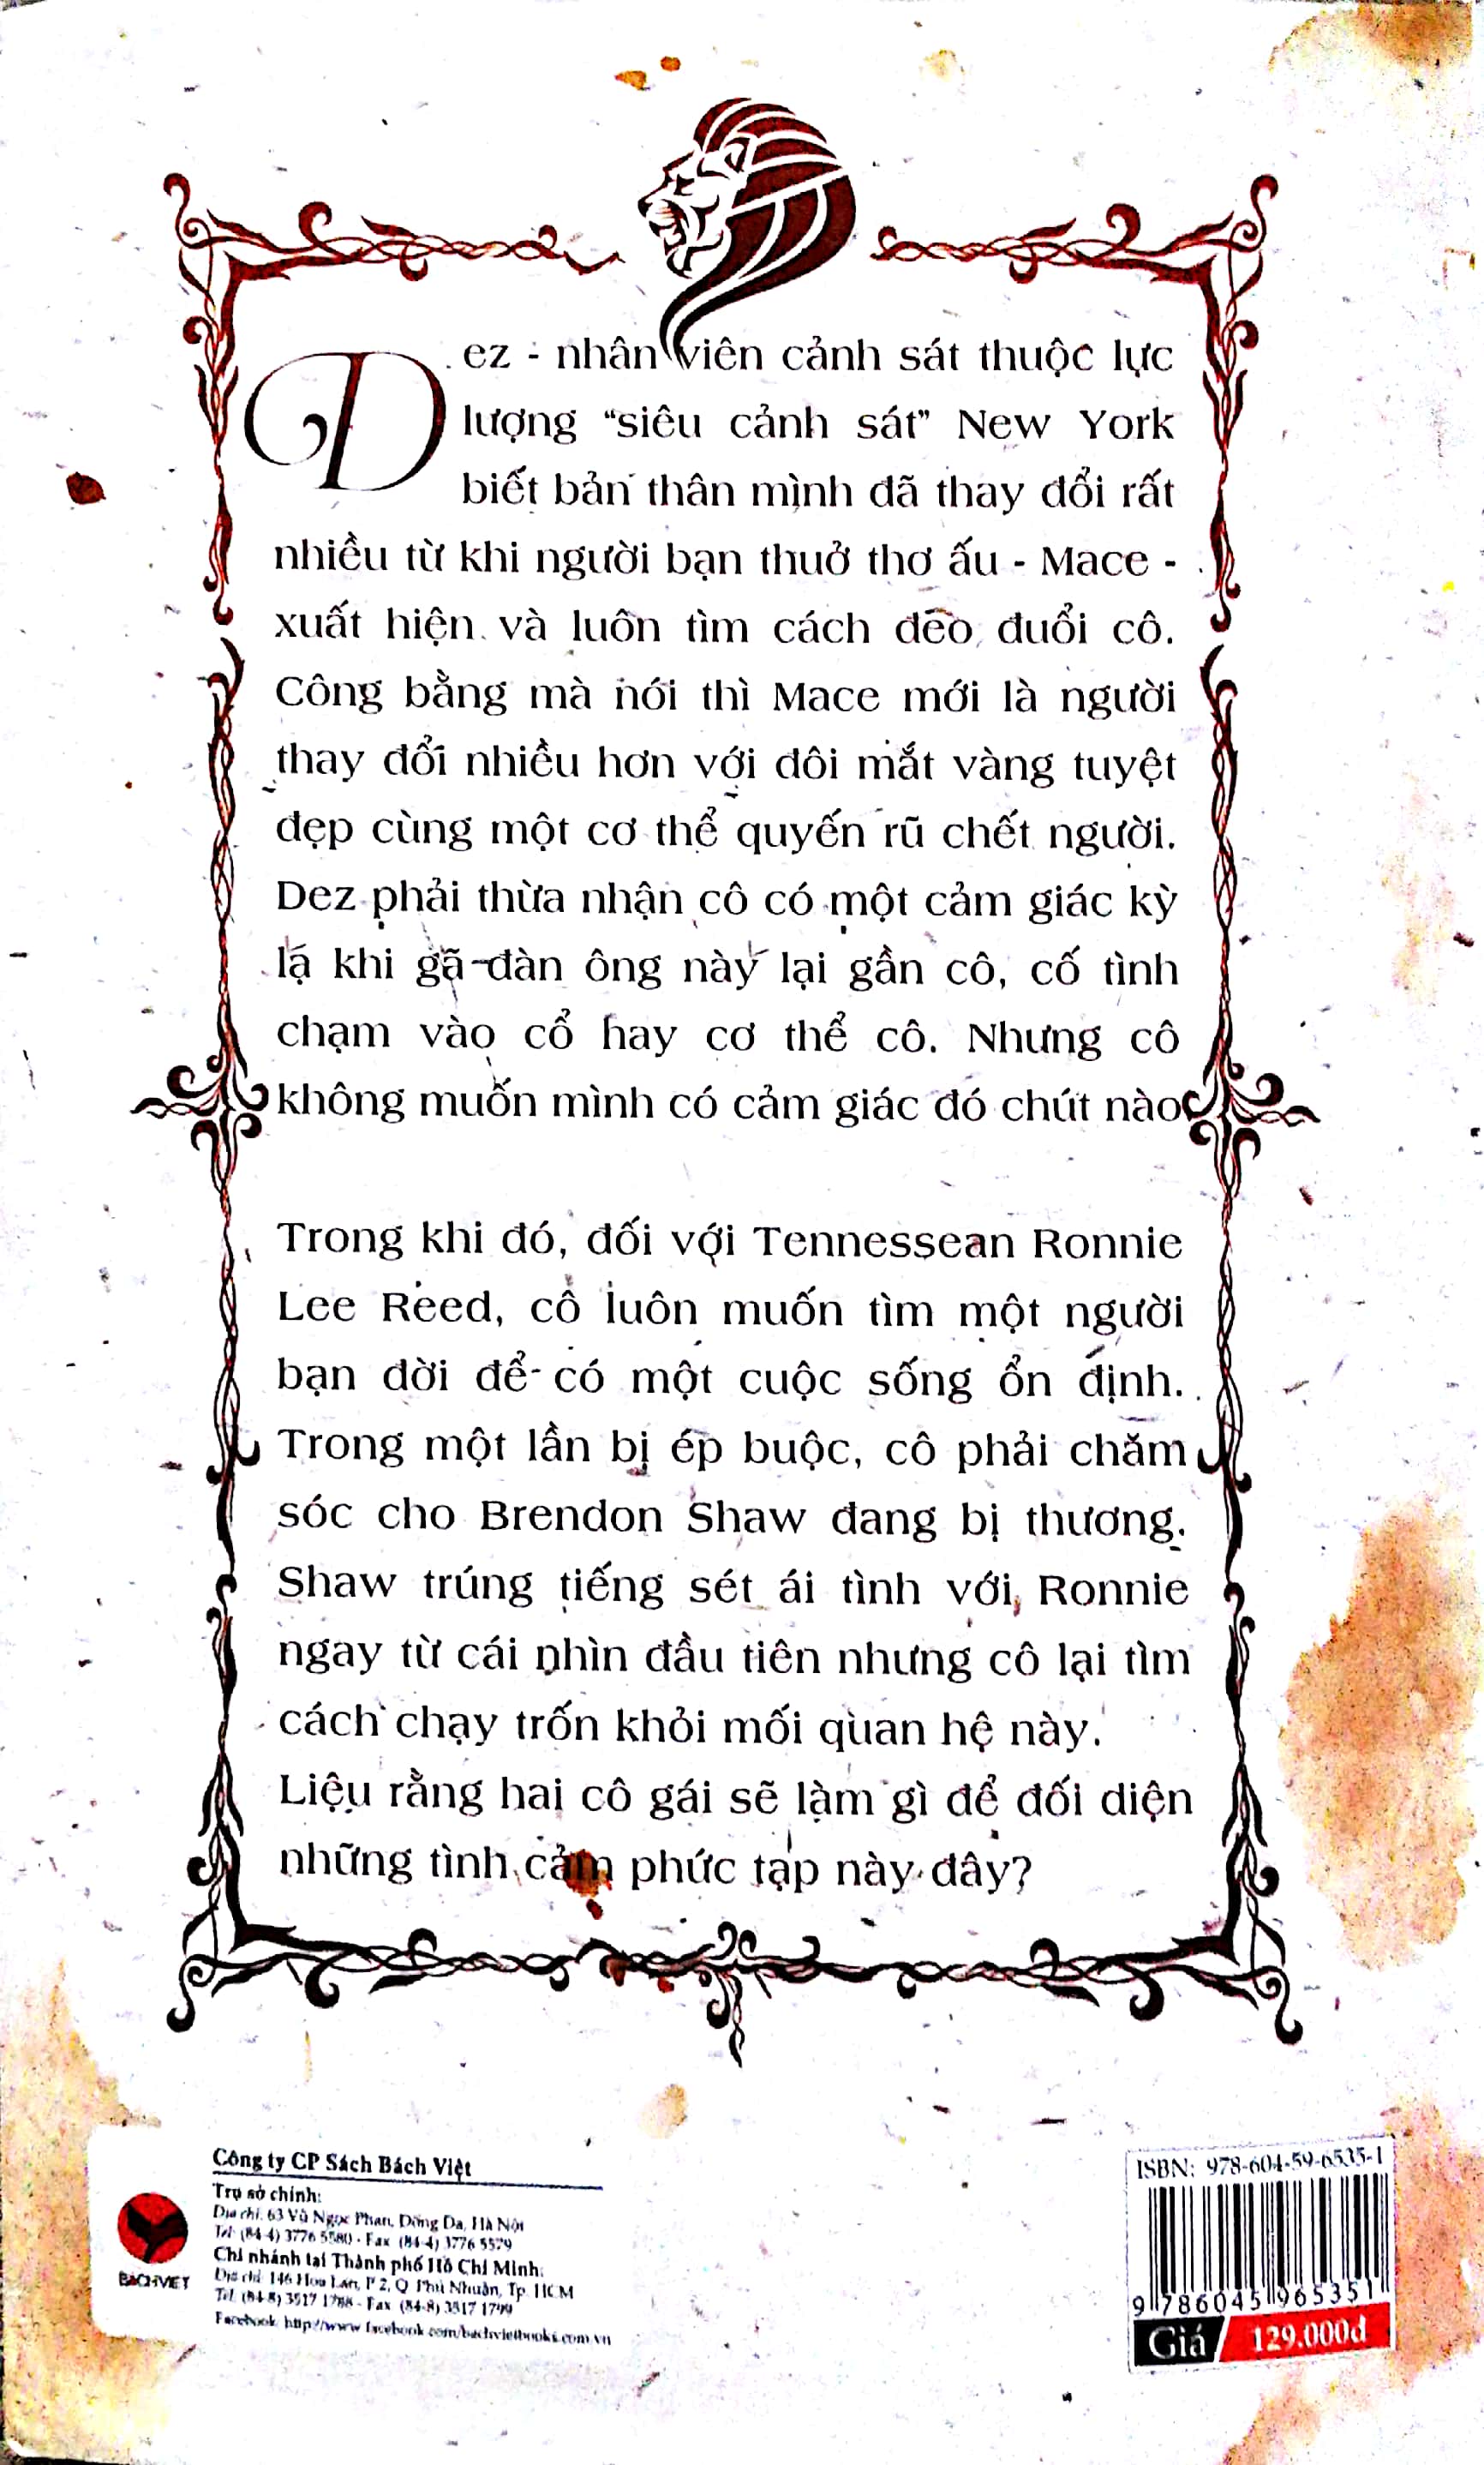 Dez - nhân viên cảnh sát thuộc lực
lượng “siêu cảnh sát” New York
biết bản thân mình đã thay đổi rất
nhiều từ khi người bạn thuở thơ ấu - Mace -
xuất hiện và luôn tìm cách đeo đuổi cô.
Công bằng mà nói thì Mace mới là người
thay đổi nhiều hơn với đôi mắt vàng tuyệt
đẹp cùng một cơ thể quyến rũ chết người.
Dez phải thừa nhận cô có một cảm giác kỳ
lạ khi gã đàn ông này lại gần cô, cố tình
chạm vào cổ hay cơ thể cô. Nhưng cô
không muốn mình có cảm giác đó chút nào
Trong khi đó, đối với Tennessean Ronnie
Lee Reed, cô luôn muốn tìm một người
bạn đời để có một cuộc sống ổn định.
Trong một lần bị ép buộc, cô phải chăm
sóc cho Brendon Shaw đang bị thương.
Shaw trúng tiếng sét ái tình với Ronnie
ngay từ cái nhìn đầu tiên nhưng cô lại tìm
cách chạy trốn khỏi mối quan hệ này.
Liệu rằng hai cô gái sẽ làm gì để đối diện
những tình cảm phức tạp này đây?
Công ty CP Sách Bách Việt
Trụ sở chính:
Địa chỉ: 63 Vũ Ngọc Phan, Đống Đa, Hà Nội
Tel: (84-4) 3776 5580 - Fax (84-4) 3776 5579
Chi nhánh tại Thành phố Hồ Chí Minh:
Địa chỉ: 146 Hoa Lan, P 2, Q Phú Nhuận, Tp. HCM
Tel: (84-8) 3517 1788 - Fax (84-8) 3517 1799
Facebook: http://www.facebook.com/bachvietbooks.com.vn
BACHVIET
ISBN: 978-604-59-6535-1
9 786045 965351
Giá 129.000đ